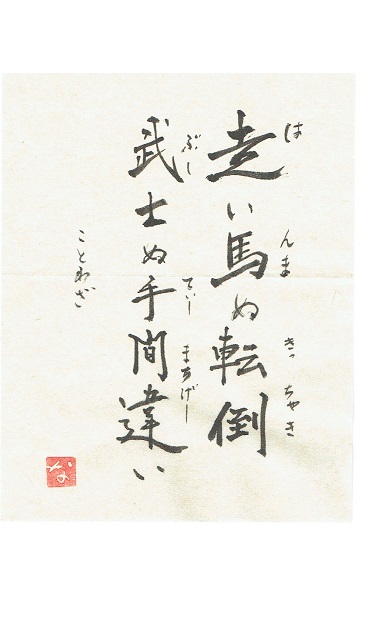 は んま きっちゃき
走い馬ぬ転倒
ぶし てぃー まちげー
武士ぬ手間違い
ことわざ
な